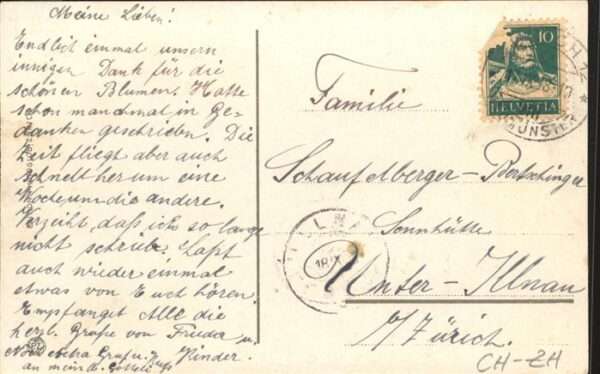 Meine Lieben!
Endlich einmal unsern
innigen Dank für die
schönen Blumen. Hatte
schon manchmal in Ge-
danken geschrieben. Die
Zeit fliegt aber auch
schnell herum eine
Woche um die andere.
Verzeiht, daß ich so lange
nicht schrieb. Laßt
auch wieder einmal
etwas von Euch hören.
Empfanget Alle die
herzl. Grüße von Frieda u.
Kinder.
an mein
10
HELVETIA
MÜNSTER
Familie
Schaufelberger-Bertschinger
Sonnhütte
Unter-Illnau
b/Zürich.
CH-ZH